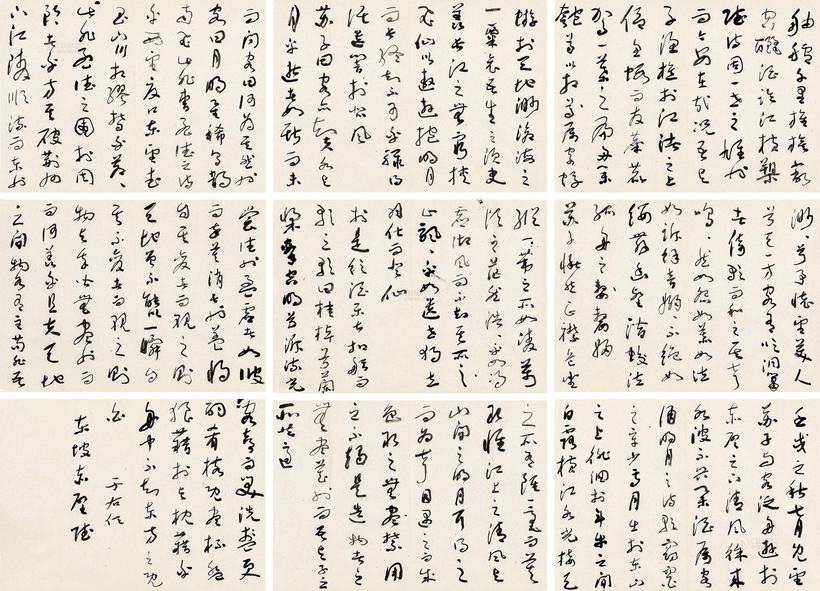 壬戌之秋七月既望
蘇子與客泛舟遊於
赤壁之下清風徐來
水波不興舉酒屬客
誦明月之詩歌窈窕
之章少焉月出於東山
之上徘徊於斗牛之間
白露橫江水光接天
縱一葦之所如凌萬
頃之茫然浩浩乎如馮
虛御風而不知其所
止飄飄乎如遺世獨立
羽化而登仙
於是飲酒樂甚扣舷而
歌之歌曰桂棹兮蘭
槳擊空明兮泝流光
渺渺兮予懷望美人
兮天一方客有吹洞簫
者倚歌而和之其聲
嗚嗚然如怨如慕如泣
如訴餘音嫋嫋不絕如
縷舞幽壑潛蛟泣
孤舟之嫠婦
蘇子愀然正襟危坐
而問客曰何為其然也
客曰月明星稀烏鵲
南飛此非曹孟德之詩
乎西望夏口東望武
昌山川相繆鬱乎蒼蒼
此非孟德之困於周
郎者乎方其破荊州
下江陵順流而東也
舳艫千里旌旗蔽
空釃酒臨江橫槊
賦詩固一世之雄也
而今安在哉況吾與
子漁樵於江渚之上
侶魚蝦而友麋鹿
駕一葉之扁舟舉
匏尊以相屬寄蜉
蝣於天地渺滄海之
一粟哀吾生之須臾
羨長江之無窮挾
飛仙以遨遊抱明月
而長終知不可乎驟得
託遺響於悲風
蘇子曰客亦知夫水與
月乎逝者如斯而未
嘗往也盈虛者如彼
而卒莫消長也蓋將
自其變者而觀之則
天地曾不能一瞬自
其不變者而觀之則
物與我皆無盡也而
又何羨乎且夫天地
之間物各有主苟非吾
之所有雖一毫而莫
取惟江上之清風與
山間之明月耳得之
而為聲目遇之而成
色取之無盡用
之不竭是造物者之
無盡藏也而吾與子之
所共適
客喜而笑洗盞更
酌肴核既盡杯盤
狼藉相與枕藉乎
舟中不知東方之既
白 于右任
東坡赤壁賦